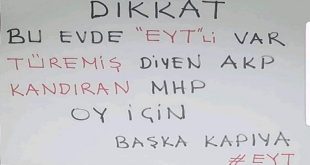 DIKKAT
BU EVDE "EYT"Lİ VAR
TÜREMİŞ DİYEN AKP
KANDIRAN MHP
OY İÇİN
BAŞKA KAPIYA
# EYT